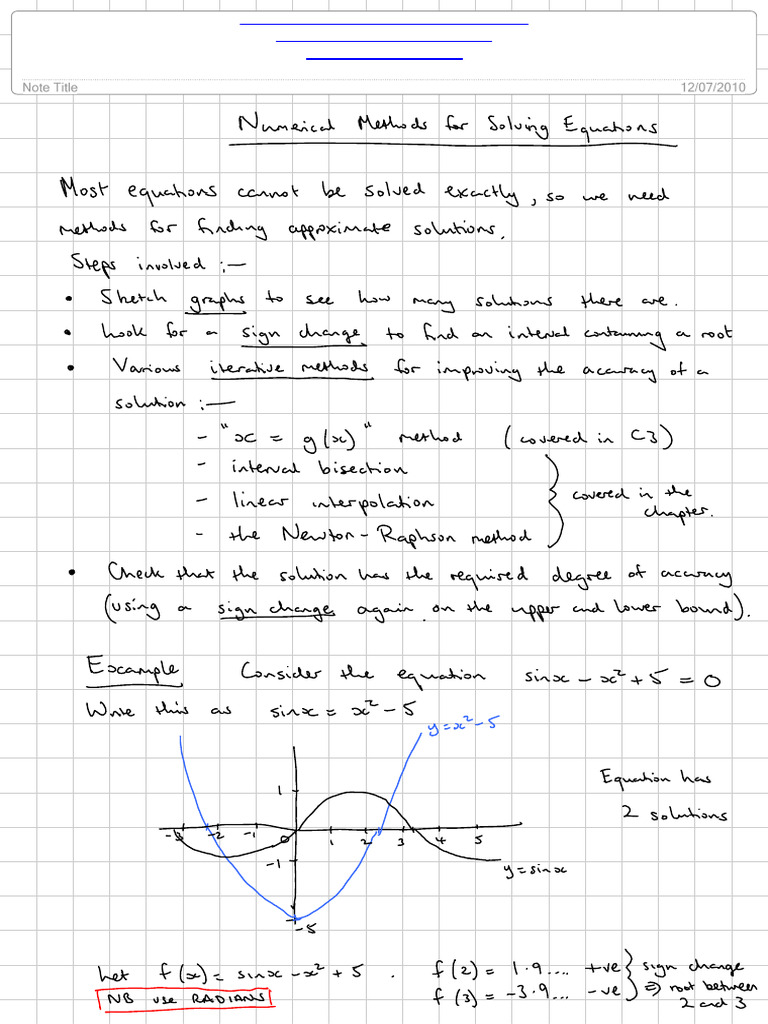 Note Title
12/07/2010
Numerical Methods for Solving Equations
Most equations cannot be solved exactly, so we need
methods for finding approximate solutions.
Steps involved :—
• Sketch graphs to see how many solutions there are.
• Look for a sign change to find an interval containing a root
• Various iterative methods for improving the accuracy of a
solution :—
- "x = g(x)" method (covered in C3)
- interval bisection
- linear interpolation
- the Newton-Raphson method
covered in the
chapter.
• Check that the solution has the required degree of accuracy
(using a sign change again on the upper and lower bound).
Example Consider the equation sinx - x² + 5 = 0
Write this as sinx = x² - 5
y = x² - 5
Equation has
2 solutions
1
-3 -2 -1 0 1 2 3 4 5
-1
y = sinx
-5
Let f(x) = sinx - x² + 5 . f(2) = 1.9.... +ve } sign change
NB USE RADIANS f(3) = -3.9... -ve } ⇒ root between
2 and 3